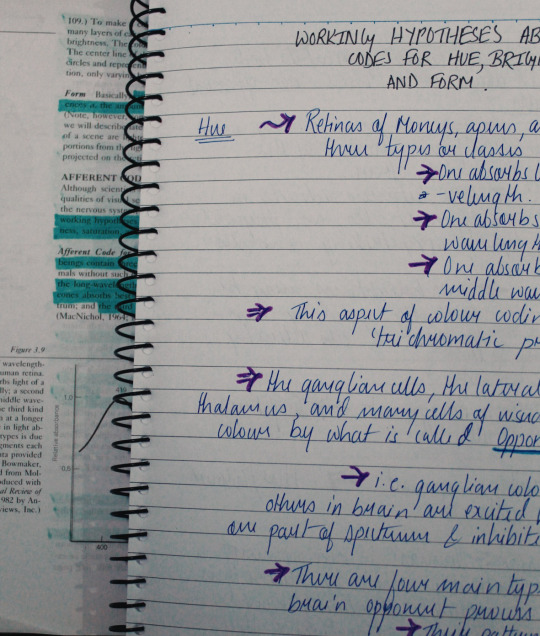 109.) To make
many layers of
brightness. The
The center line
circles and
tion, only
Form Basically
(Note, however,
we will describe
of a scene are
portions from the
projected on the
AFFERENT COD
Although
qualities of visual
the nervous
working
ness, saturation
Afferent Code
beings contain
mals without such
the long-wavelength
cones absorbs
trum; and
(MacNichol, 1964;
Figure 3.9
wavelength-
human retina.
light of a
a second
middle wave-
e third kind
at a longer
in light ab-
types is due
each
provided
Bowmaker,
from Mol-
oduced with
Review of
1982 by An-
views, Inc.)
Relative absorbance
1.0
0.5
400
WORKING HYPOTHESES AB
CODES FOR HUE, BRIG
AND FORM.
Hue Retinas of Moneys, apers, a
three types or classis
One absorbs
-velength.
One absorbs
wavelength
One absorb
middle wav
This aspect of colour codin
'trichromatic pr
the ganglian cells, the lateral
thalamus, and many cells of visu
colour by what is called Oppon
i.e. ganglian colo
others in brain are excited
one part of spectrum & inhibite
There are four main typ
brain opponent
Their